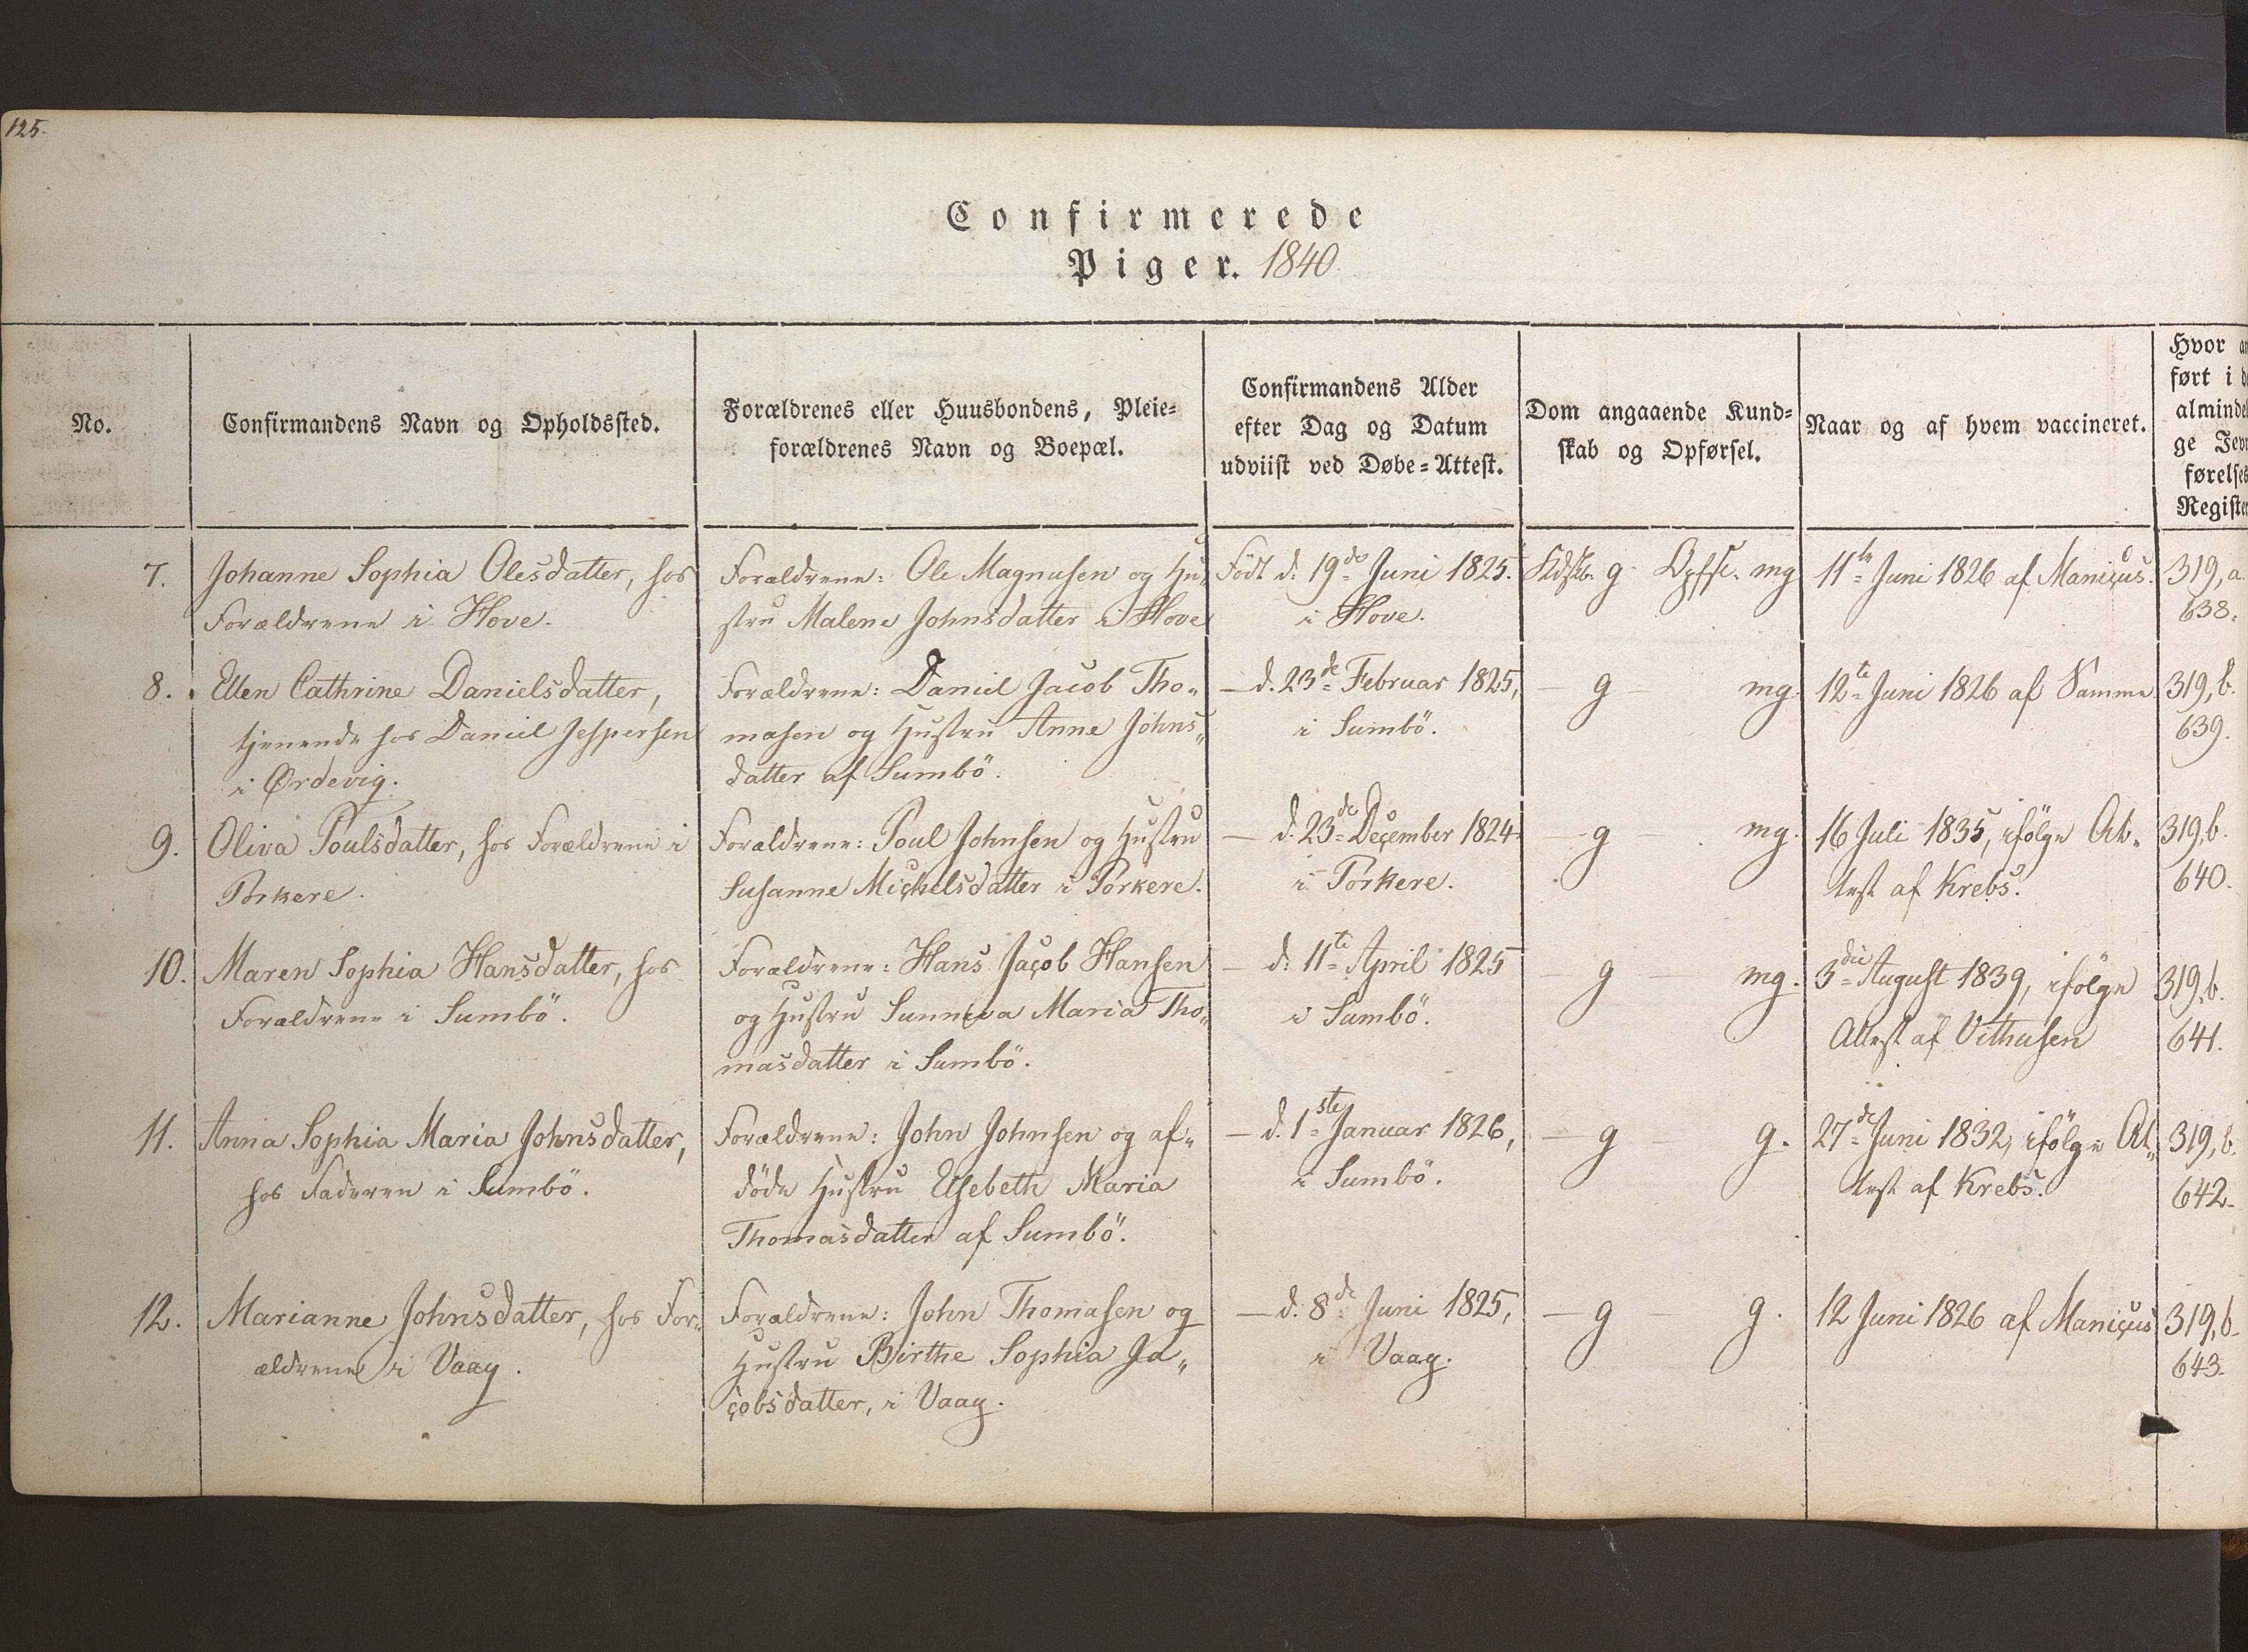 125.
Confirmerede
Piger. 1840.
No.
Confirmandens Navn og Opholdssted.
Forældrenes eller Huusbondens, Pleie=
forældrenes Navn og Boepæl.
Confirmandens Alder
efter Dag og Datum
udviist ved Døbe=Attest.
Dom angaaende Kund=
skab og Opførsel.
Naar og af hvem vaccineret.
Hvor an
ført i d
almindel
ge Jevn
førelses
Register
7.
Johanne Sophia Olesdatter, hos
Forældrene i Hove.
Forældrene: Ole Magnusen og Hu
stru Malene Johnsdatter i Hove
Født d. 19de Juni 1825.
i Hove.
Kdsk. g Opfsl. mg
11te Juni 1826 af Manicus.
319, a.
638.
8.
Ellen Cathrine Danielsdatter,
tjenende hos Daniel Jespersen
i Ørdevig.
Forældrene: Daniel Jacob Tho„
masen og Hustru Anne Johns„
datter af Sumbö.
— d. 23de Februar 1825,
i Sumbö.
— g — mg.
12te Juni 1826 af Samme
319, b.
639.
9.
Oliva Poulsdatter, hos Forældrene i
Porkere.
Forældrene: Poul Johnsen og Hustru
Susanne Michelsdatter i Porkere.
— d. 23de December 1824
i Porkere.
— g — mg.
16 Juli 1835, ifölge At„
test af Krebs.
319, b.
640.
10.
Maren Sophia Hansdatter, hos
Forældrene i Sumbö.
Forældrene: Hans Jacob Hansen
og Hustru Sunneva Maria Tho„
masdatter i Sumbö.
— d. 11te April 1825
i Sumbö.
— g — mg.
3die August 1839, ifölge
Attest af Vithusen
319, b.
641.
11.
Anna Sophia Maria Johnsdatter,
hos Faderen i Sumbö.
Forældrene: John Johnsen og af„
döde Hustru Elsebeth Maria
Thomasdatter af Sumbö.
— d. 1ste Januar 1826,
i Sumbö.
— g — g.
27de Juni 1832, ifölge At„
test af Krebs.
319, b.
642.
12.
Marianne Johnsdatter, hos For„
ældrene i Vaag.
Forældrene: John Thomasen og
Hustru Birthe Sophia Ja„
cobsdatter, i Vaag.
— d. 8de Juni 1825,
i Vaag.
— g g.
12 Juni 1826 af Manicus
319, b.
643.